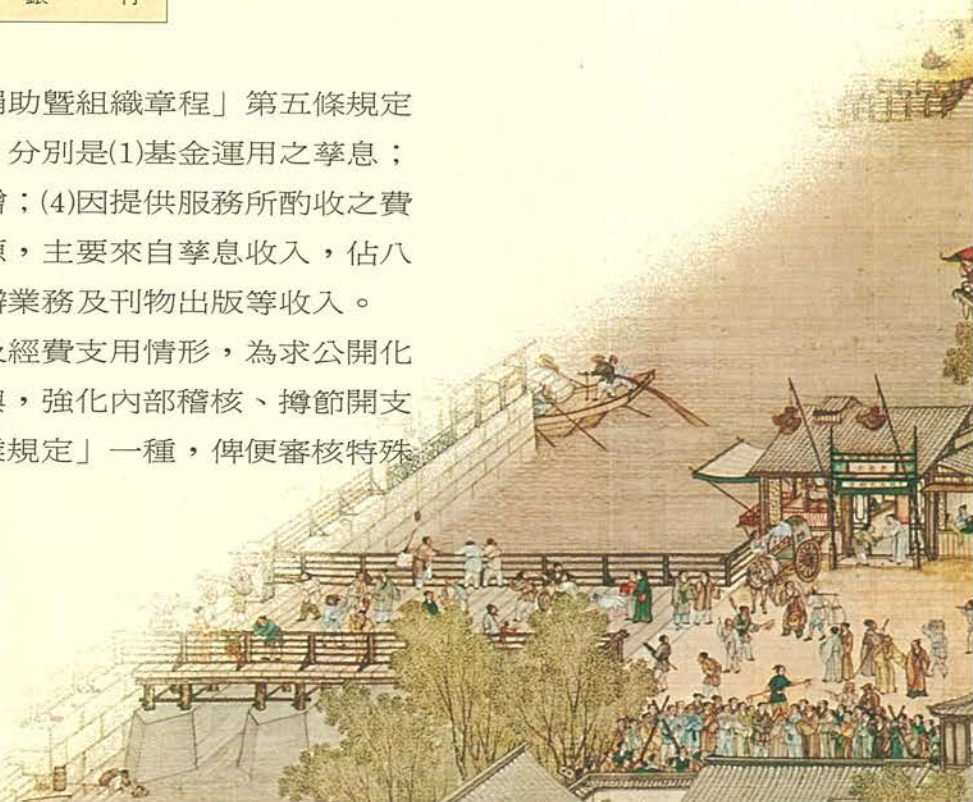 銀 行
助暨組織章程」第五條規定
分別是(1)基金運用之孳息；
；(4)因提供服務所酌收之費
，主要來自孳息收入，佔八
業務及刊物出版等收入。
經費支用情形，為求公開化
，強化內部稽核、撙節開支
規定」一種，俾便審核特殊